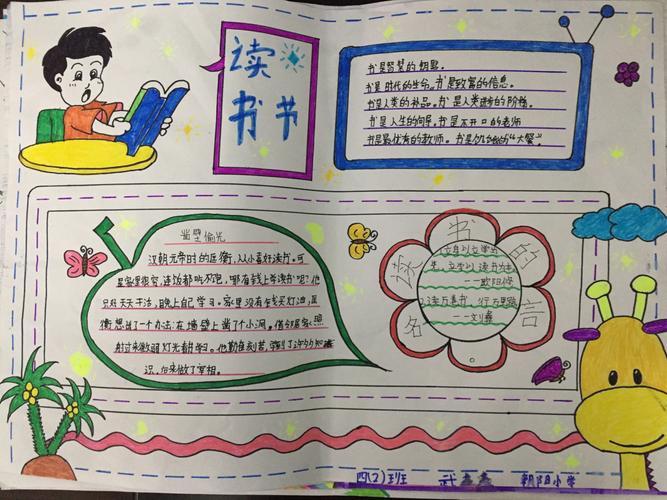 读
书节
书是智慧的钥匙。
书是时代的生命。书是致富的信息。
书是人类的补品。书是人类进步的阶梯。
书是人生的向导。书是不开口的老师
书是最优秀的教师。书是"大餐"。
凿壁偷光
汉朝元帝时的匡衡，从小喜好读书。可
是家里很穷，连饭都吃不饱，哪有钱上学读书呢？他
只好天天干活，晚上自己学习。家里没有钱买灯油，匡
衡想出了一个办法：在墙壁上凿了个小洞，借邻居家照
射过来微弱灯光学习。他勤奋刻苦，学到了许多知
识，后来做了宰相。
读书的名言
立身以立学为
先，立学以读书为本
——欧阳修
读万卷书，行万里路
——刘彝
四(2)班
武
朝阳小学